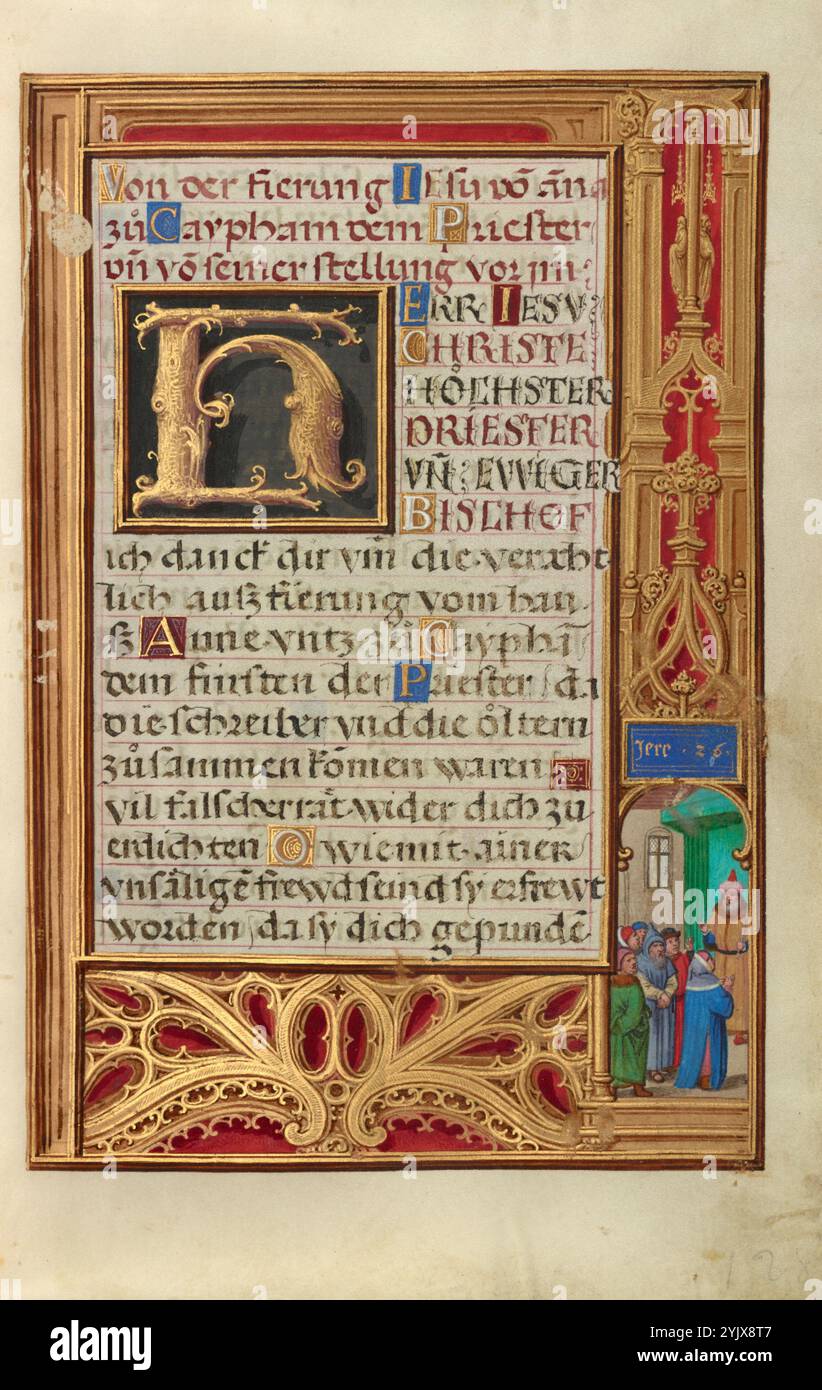 Von der fierung Iesu vō āna
zů Caypham dem Priester
vn̄ vō seiner stellung vor im·
HERR IESV
CHRISTE
HÖCHSTER
PRIESTER
VN̄ EVVIGER
BISCHOF
ich danck dir vm̄ die veracht
lich ausz fierung vom hau
sz Anne vntz zů Cayphā
dem fürsten der Priester / da
die schreiber vnd die öltern
zůsammen kōmen waren
vil falscher rät wider dich zu
erdichten O wie mit ainer
vnsäligē frewd seind sy erfrewt
worden / da sy dich gepundē
Jere · 26 ·
128
alamy
Image ID: 2YJX8T7
www.alamy.com